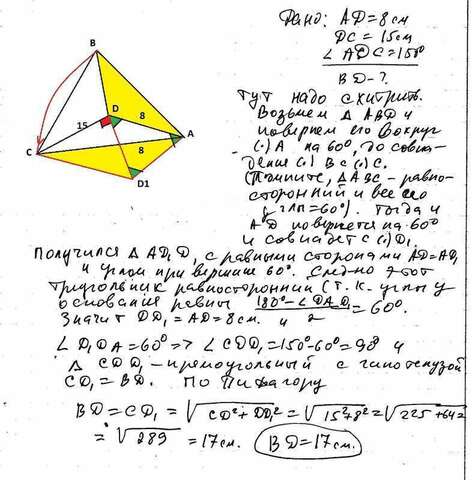 Дано: AD=8см
DC=15см
∠ADC=150°
BD-?
B
D
15
8
8
A
C
D1
Тут надо схитрить.
Возьмем △ ABD и
повернем его вокруг
(·) A на 60°, до совпа-
дения (·) B с (·) C.
(Помните, △ABC - равно-
сторонний и все его
углы=60°). Тогда и
AD повернется на 60°
и совпадет с (·) D₁
Получился △ AD₁D, с равными сторонами AD=AD₁
и углом при вершине 60°. Следно этот
треугольник равносторонний (т.к. углы у
основания равны (180°-∠DAD₁)/2 = 60°.
Значит DD₁=AD=8см. и
∠D₁DA=60° => ∠CDD₁=150°-60°=90 и
△ CDD₁ - прямоугольный с гипотенузой
CD₁=BD. По Пифагору
BD=CD₁=√CD²+DD₁²=√15²+8²=√225+64=
=√289=17см. BD=17см.